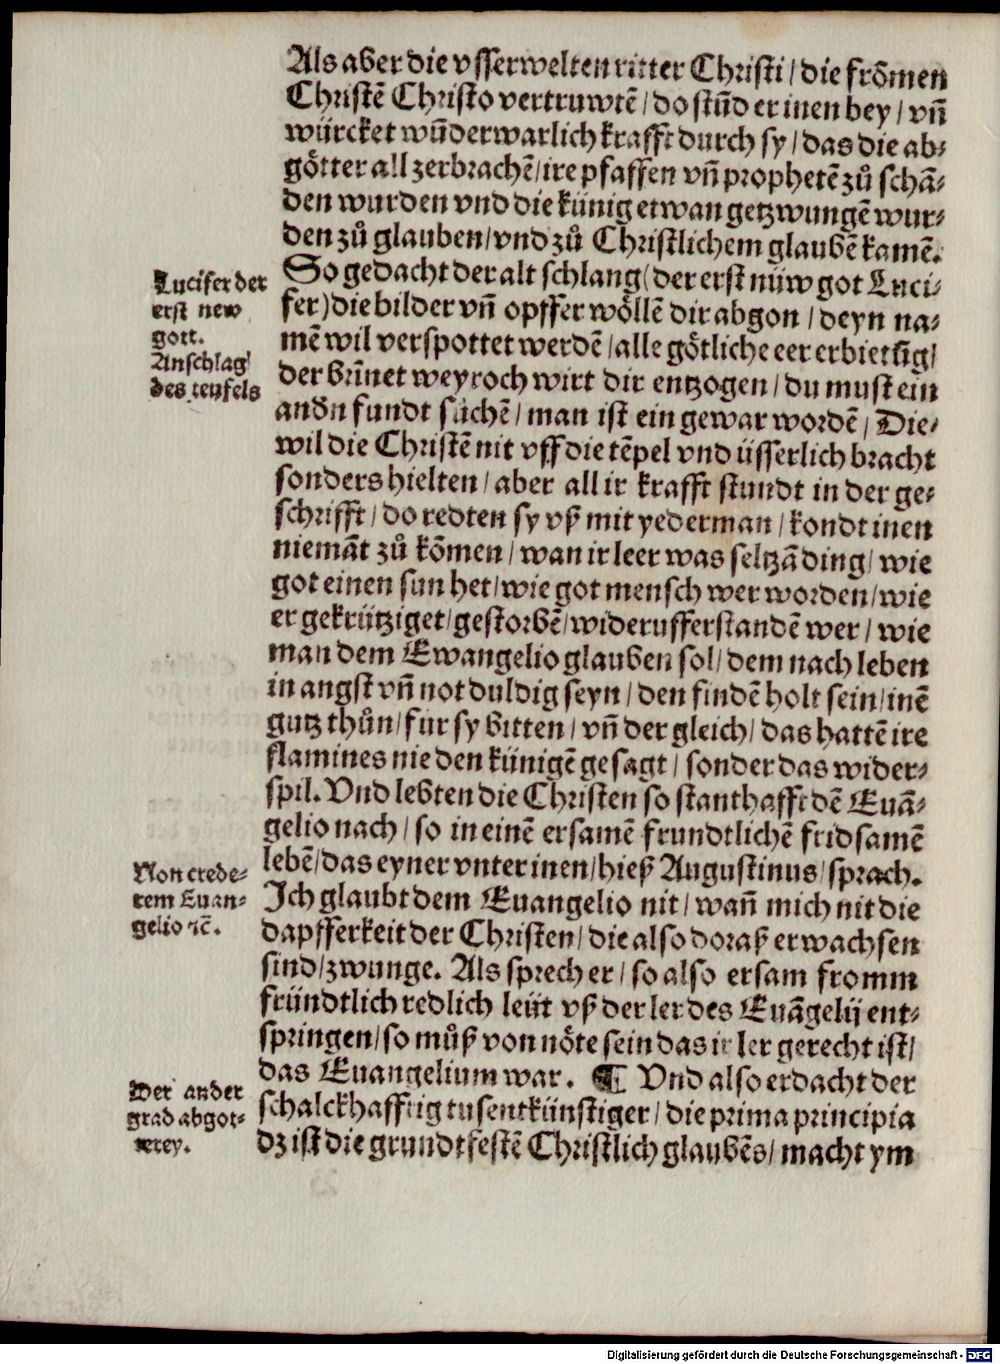 Als aber die vsserwelten ritter Christi / die frõmen
Christẽ Christo vertruwtẽ / do stůd er inen bey / vñ
würcket wũderwarlich krafft durch sy / das die ab⸗
götter all zerbrachẽ / ire pfaffen vñ prophetẽ zů schã⸗
den wurden vnd die künig etwan getzwungẽ wur⸗
den zů glauben / vnd zů Christlichem glaubẽ kamẽ.
So gedacht der alt schlang (der erst nüw got Luci⸗
fer) die bilder vñ opffer wöllẽ dir abgon / deyn na⸗
mẽ wil verspottet werdẽ / alle götliche eer erbietũg /
der brĩnet weyroch wirt dir entzogen / du must ein
andn fundt sůchẽ / man ist ein gewar wordẽ / Die⸗
wil die Christẽ nit vff die tẽpel vnd üsserlich bracht
sonders hielten / aber all ir krafft stundt in der ge⸗
schrifft / do redten sy vß mit yederman / kondt inen
niemãt zů kõmen / wan ir leer was seltzã ding / wie
got einen sun het / wie got mensch wer worden / wie
er gekrütziget / gestorbẽ / wider vfferstandẽ wer / wie
man dem Ewangelio glauben sol / dem nach leben
in angst vñ not duldig seyn / den findẽ holt sein / inẽ
gutz thůn / fur sy bitten / vñ der gleich / das hattẽ ire
flamines nie den künigẽ gesagt / sonder das wider⸗
spil. Vnd lebten die Christen so stanthafft dẽ Euã⸗
gelio nach / so in einẽ ersamẽ frundtlichẽ fridsamẽ
lebẽ / das eyner vnter inen / hieß Augustinus / sprach.
Ich glaubt dem Euangelio nit / wañ mich nit die
dapfferkeit der Christen / die also doraß erwachsen
sind / zwunge. Als sprech er / so also ersam fromm
fründtlich redlich leüt vß der ler des Euãgelij ent⸗
springen / so můß von nöte sein das ir ler gerecht ist /
das Euangelium war. ¶ Vnd also erdacht der
schalckhafftig tusentkünstiger / die prima principia
dz ist die grundtfestẽ Christlich glaubẽs / macht ym
Lucifer der
erst new
gott.
Anschlag
des teufels
Non crede⸗
rem Euan⸗
gelio ꝛc̃.
Der ander
grad abgot⸗
terey.
Digitalisierung gefördert durch die Deutsche Forschungsgemeinschaft - DFG